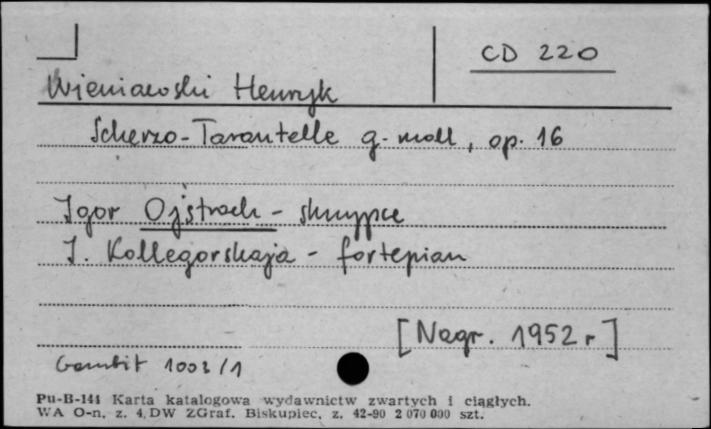 CD 220
Wieniawski Henryk
Scherzo-Tarantelle g-moll, op. 16
Igor Ojstrach - skrzypce
I. Kollegorskaja - fortepian
[Nagr. 1952 r]
Gambit 1002/1
Pu-B-144 Karta katalogowa wydawnictw zwartych i ciągłych.
WA O-n, z. 4, DW ZGraf. Biskupiec, z. 42-90 2 070 000 szt.